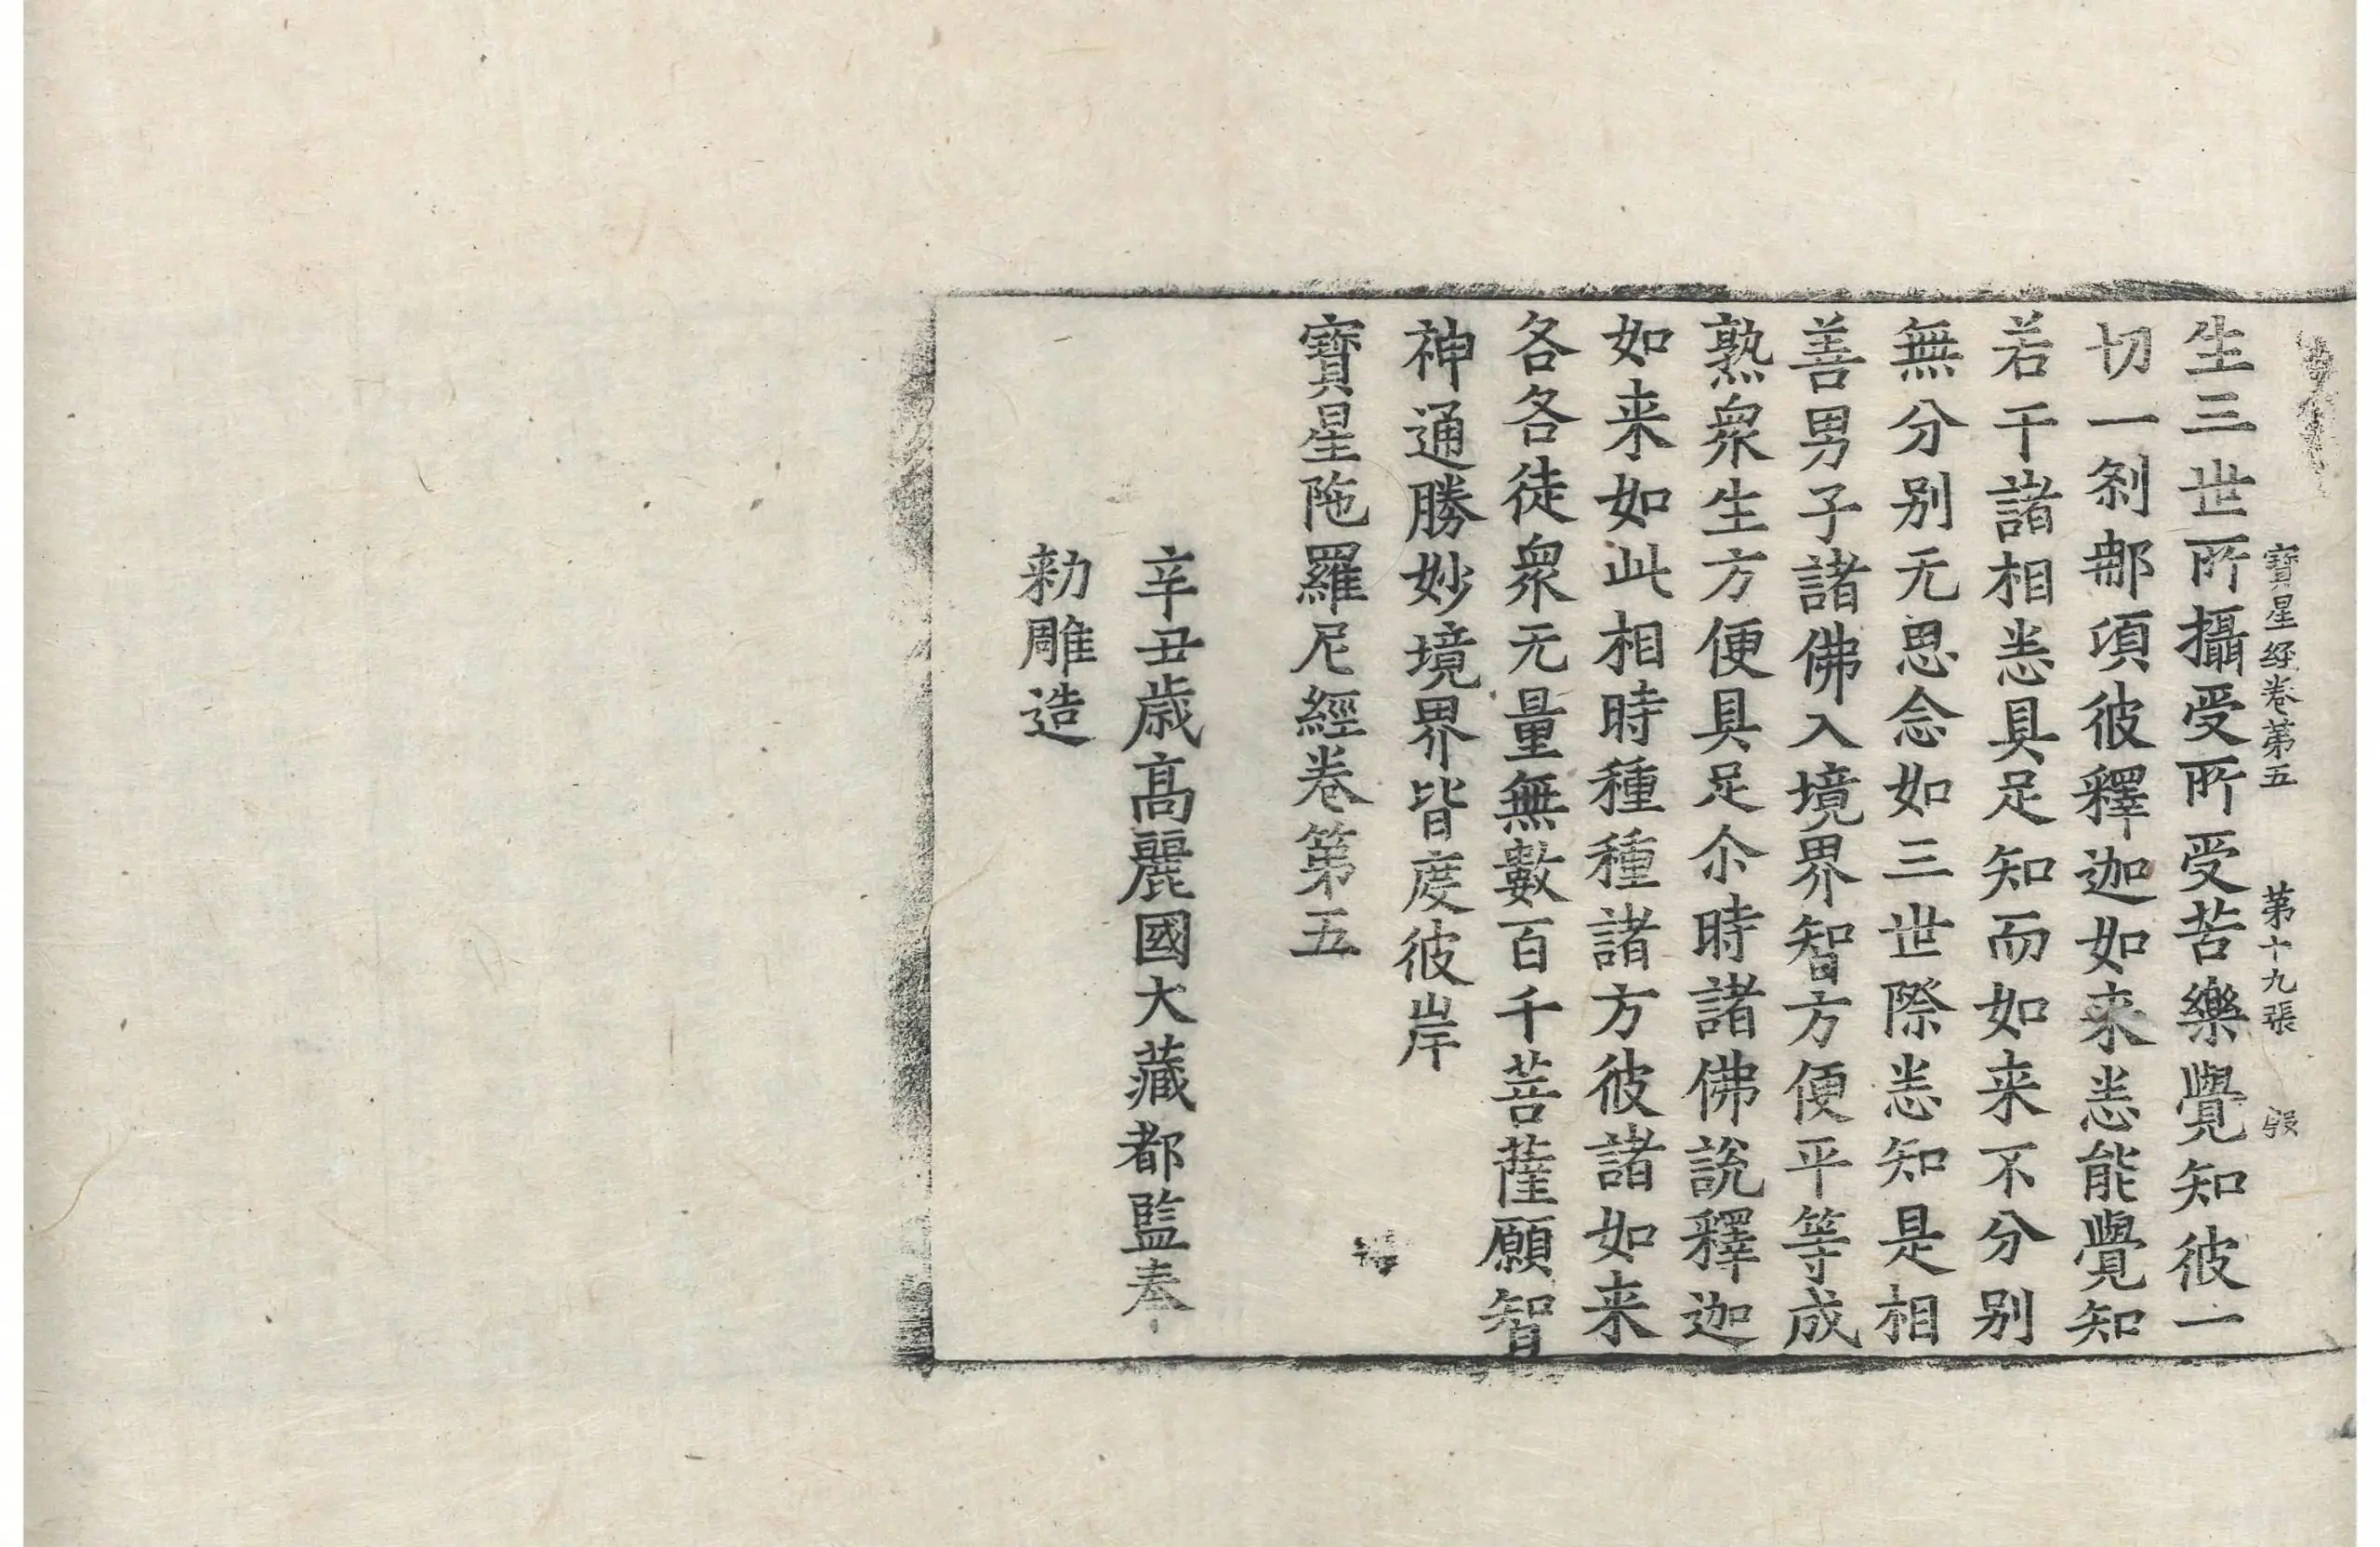 寶星経卷苐五 苐十九張 殷
生三世所攝受所受苦樂覺知彼一
切一刹那項彼釋迦如来悉能覺知
若干諸相悉具足知而如来不分別
無分別无思念如三世際悉知是相
善男子諸佛入境界智方便平等成
熟衆生方便具足尒時諸佛說釋迦
如来如此相時種種諸方彼諸如来
各各徒衆无量無數百千菩薩願智
神通勝妙境界皆度彼岸
寶星陁羅尼經卷第五
辛丑歳髙麗國大藏都監奉
勑雕造